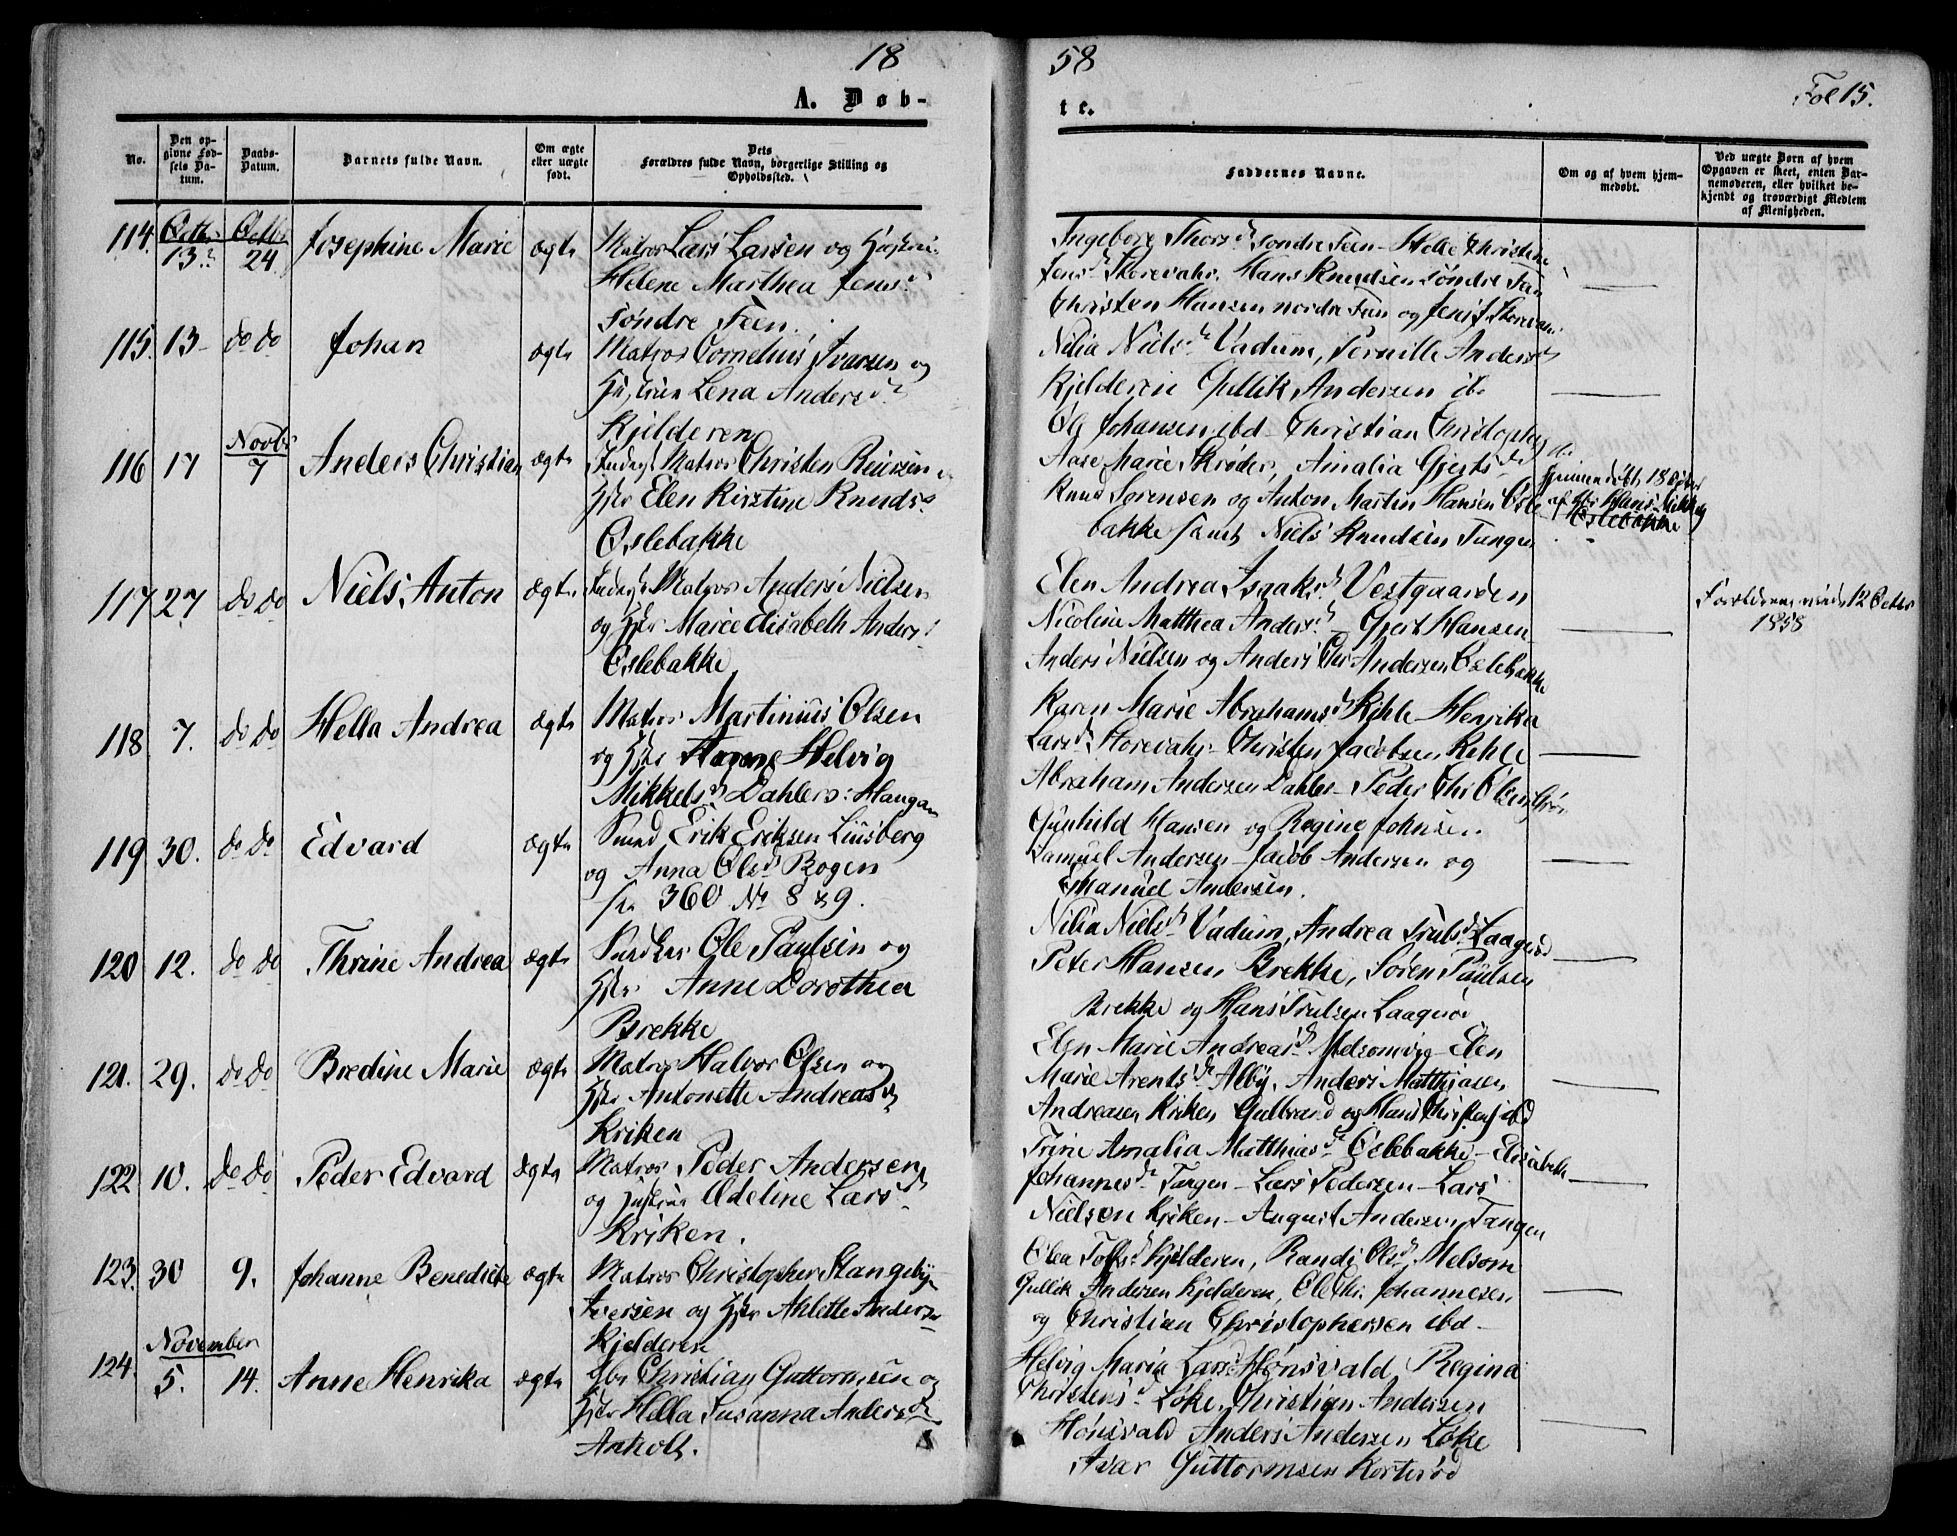 18
58
Fol 15.
A. Døb-
te.
No.
Den op-
givne Fød-
sels Da-
tum.
Daabs-
Datum.
Barnets fulde Navn.
Om ægte
eller uægte
født.
Dets
Forældres fulde Navn, borgerlige Stilling og
Opholdssted.
Faddernes Navne.
Om og af hvem hjem-
medøbt.
Ved uægte Børn af hvem
Opgaven er skeet, enten Bar-
nemoderen, eller hvilket be-
kjendt og troværdigt Medlem
af Menigheden.
114. Octbr 13. Octbr 24. Josephine Marie ægte Matros Lars Larsen og
Helene Marthea Jensd
Søndre Feen
Ingeborg Thorsd søndre Feen - Helle Christine
Jensd Storevahr. Hans Knudsen søndre Fen
Christen Hansen nordre Feen og Jens
115. 13 do do Johan ægte Matros Cornelius Ivarsen og
Hustrue Lena Andersd
Kjelderen
Nilia Nielsd Vadum, Pernille Andersd
Kjelderen Gullik Andersen ib
Ole Johansen ibd - Christian Christophersen
116 17 Novbr 7 Anders Christian ægte Matros Christen
Hstr Elen Kirstine Knudsd
Oslebakke
Aase Marie Skrøder, Amalia Gjertsd
Knud Sørensen og Anton Martin Hansen Osle
bakke samt Niels Knudsen Tangen
Hjemmedøbt 18 Octbr
af Hans
Oslebakke
117 27 do do Niels Anton ægte Matros Anders Nielsen
og Hstr Marie Elisabeth Andersd
Oslebakke
Elen Andrea Isaksd Vestgaarden
Nicoline Matthea Andersd Gjert Hansen
Anders Nielsen og Anders Chr Andersen Oslebakke
Forældrene viede 12 Octbr
1858
118 7. do do Hella Andrea ægte Matros Martinius Olsen
og Hstr Helvig
Mikkelsd Dahlers: Haugan
Karen Marie Abrahamsd Kihle - Henrika
Larsd Storevahr - Christen Jacobsen Kihle
Abraham Andersen Dahler - Peder Chr Olsen
119 30. do do Edvard ægte Smed Erik Eriksen Liusberg
og Anna Olsd Bogen
360 No 8 & 9.
Gunhild Hansen og Regine Johnsen
Samuel Andersen - Jacob Andersen og
Emanuel Andersen.
120 12. do do Thrine Andrea ægte Ole Paulsen og
Hstr Anne Dorothea
Brekke
Nilia Nielsd Vadum, Andrea Trulsd Laagerød
Peter Hansen Brekke, Søren Paulsen
Brekke og Hans Trulsen Laagerød
121. 29. do do Bredine Marie ægte Matros Halvor Olsen og
Hstr Antonette Andreasd
Kriken
Elen Marie Andreasd Melsomvig - Elen
Marie Arentsd Alby, Anders Matthiasen
Andreasen Kriken Gulbrand og Hans Christensen ibd
122 10. do do Peder Edvard ægte Matros Peder Andersen
og Hustrue Adeline Larsd
Kriken.
Trine Amalia Matthiasd Oslebakke - Elisabeth
Johannesd Tangen - Lars Pedersen - Lars
Nielsen Kriken - August Andersen Tangen
123. 30 9. Johanne Benedicte ægte Matros Christopher Stangeby
Iversen og Hstr Ahlette Andersd
Kjelderen
Olea Tolfsd Kjelderen, Randi Olsd Melsom
Gullik Andersen Kjelderen, Ole Chr. Johannesen
og Christian Christophersen ibd -
November
124. 5. 14. Anne Henrika ægte Christian Guttormsen og
Hstr Hella Susanna Andersd
Anholt.
Helvig Maria Larsd Hønsvald Regina
Christensd Løke, Christian Andersen
Hønsvald Anders Andersen Løke
Ivar Guttormsen Korterød